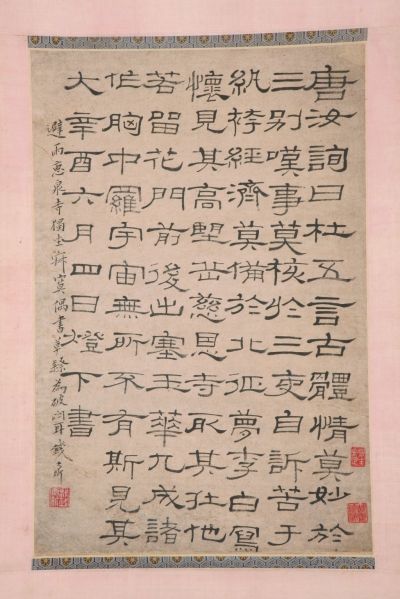 唐汝詢曰杜五言古體情莫妙於
三別嘆事莫核於三吏自訴苦于
紈袴經濟莫備於北征夢李白寫
懷見其高朢岳慈恩寺取其壯他
若留花門前後出塞玉華九成諸
作胸中羅宇宙無所不有斯見其
大辛酉六月四日燈下書
避雨惠泉寺獨坐寂寞偶書草隸為破悶耳